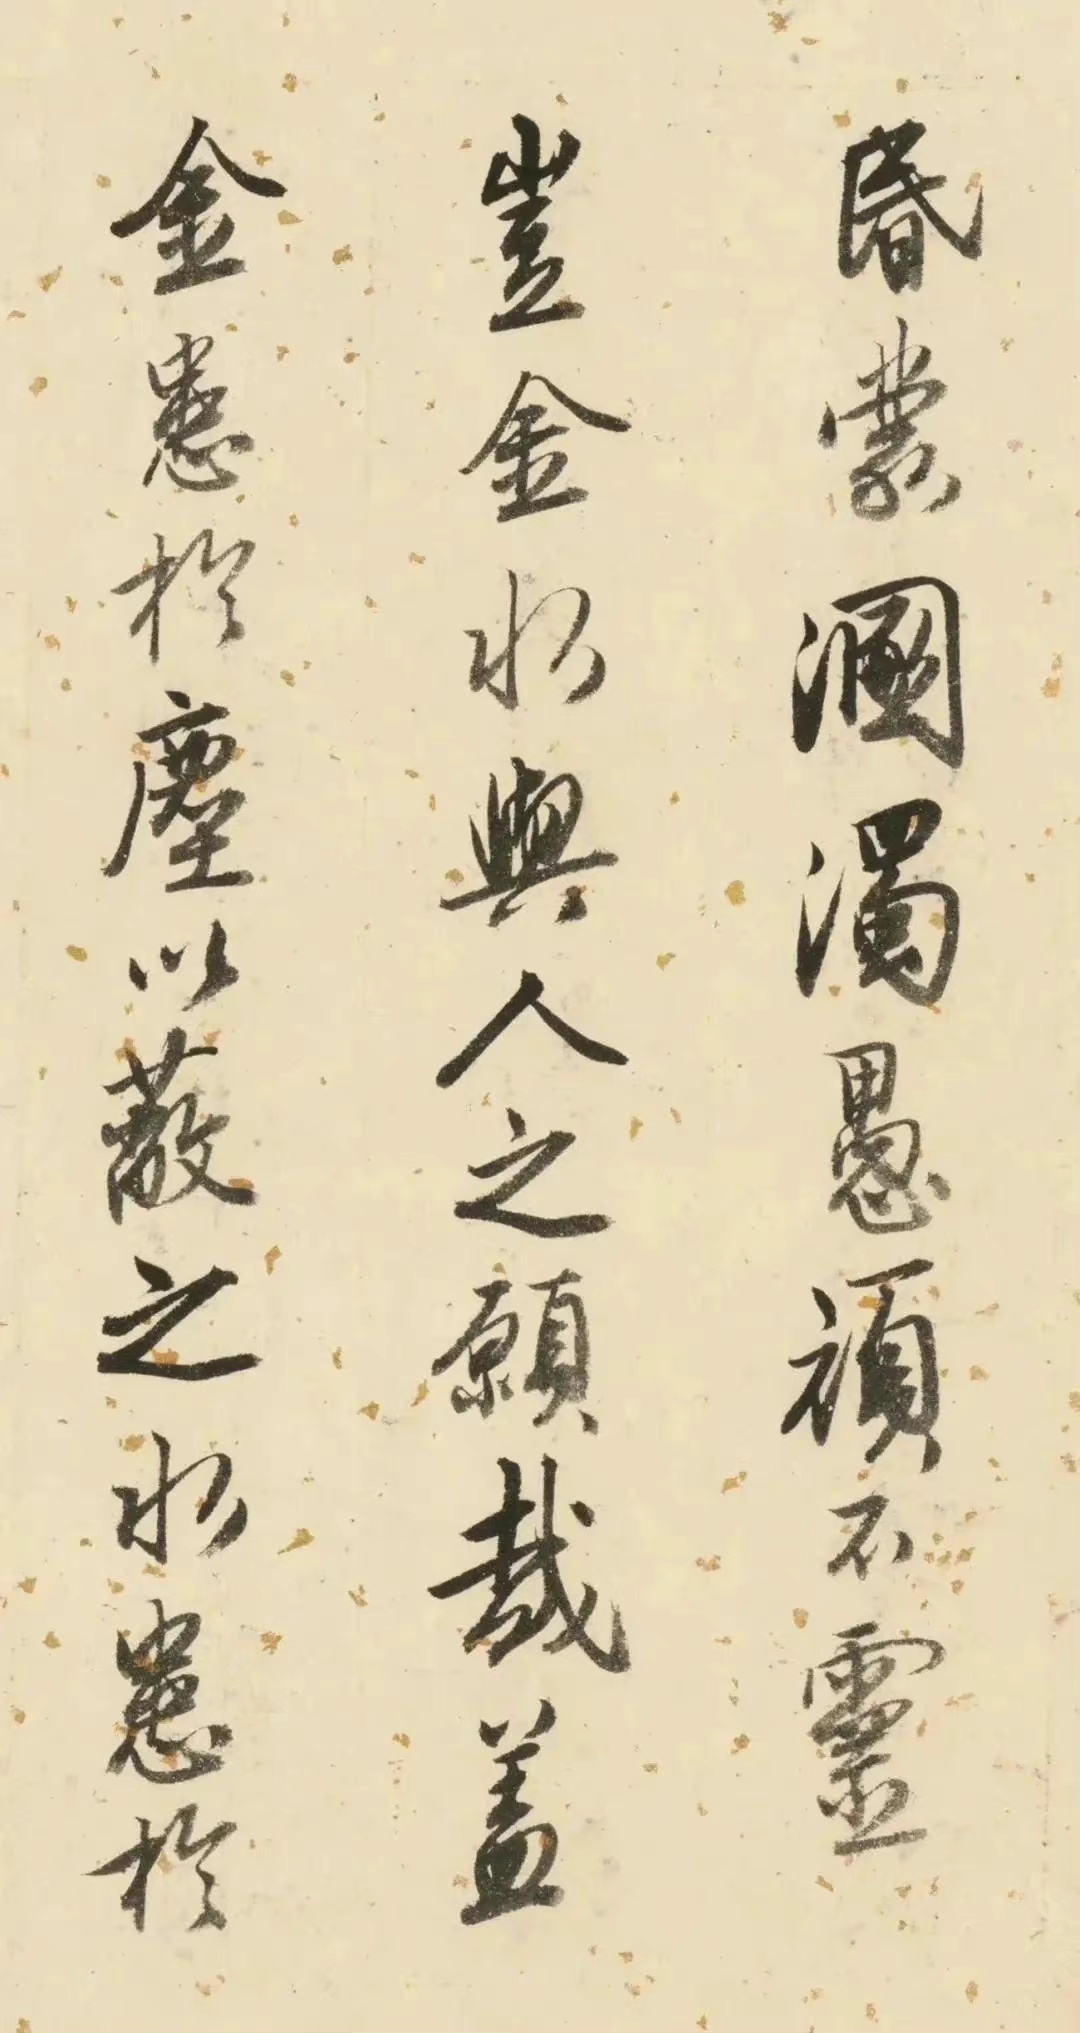 昏蒙溷濁愚頑不靈
豈金水與人之願哉蓋
金患於塵以蔽之水患於